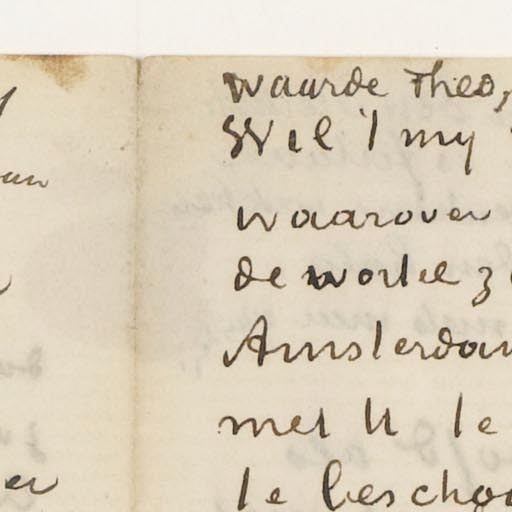 waarde Theo,
Wil 't my
waarover
de wortel z
Amsterdam
met U te
te beschou
er